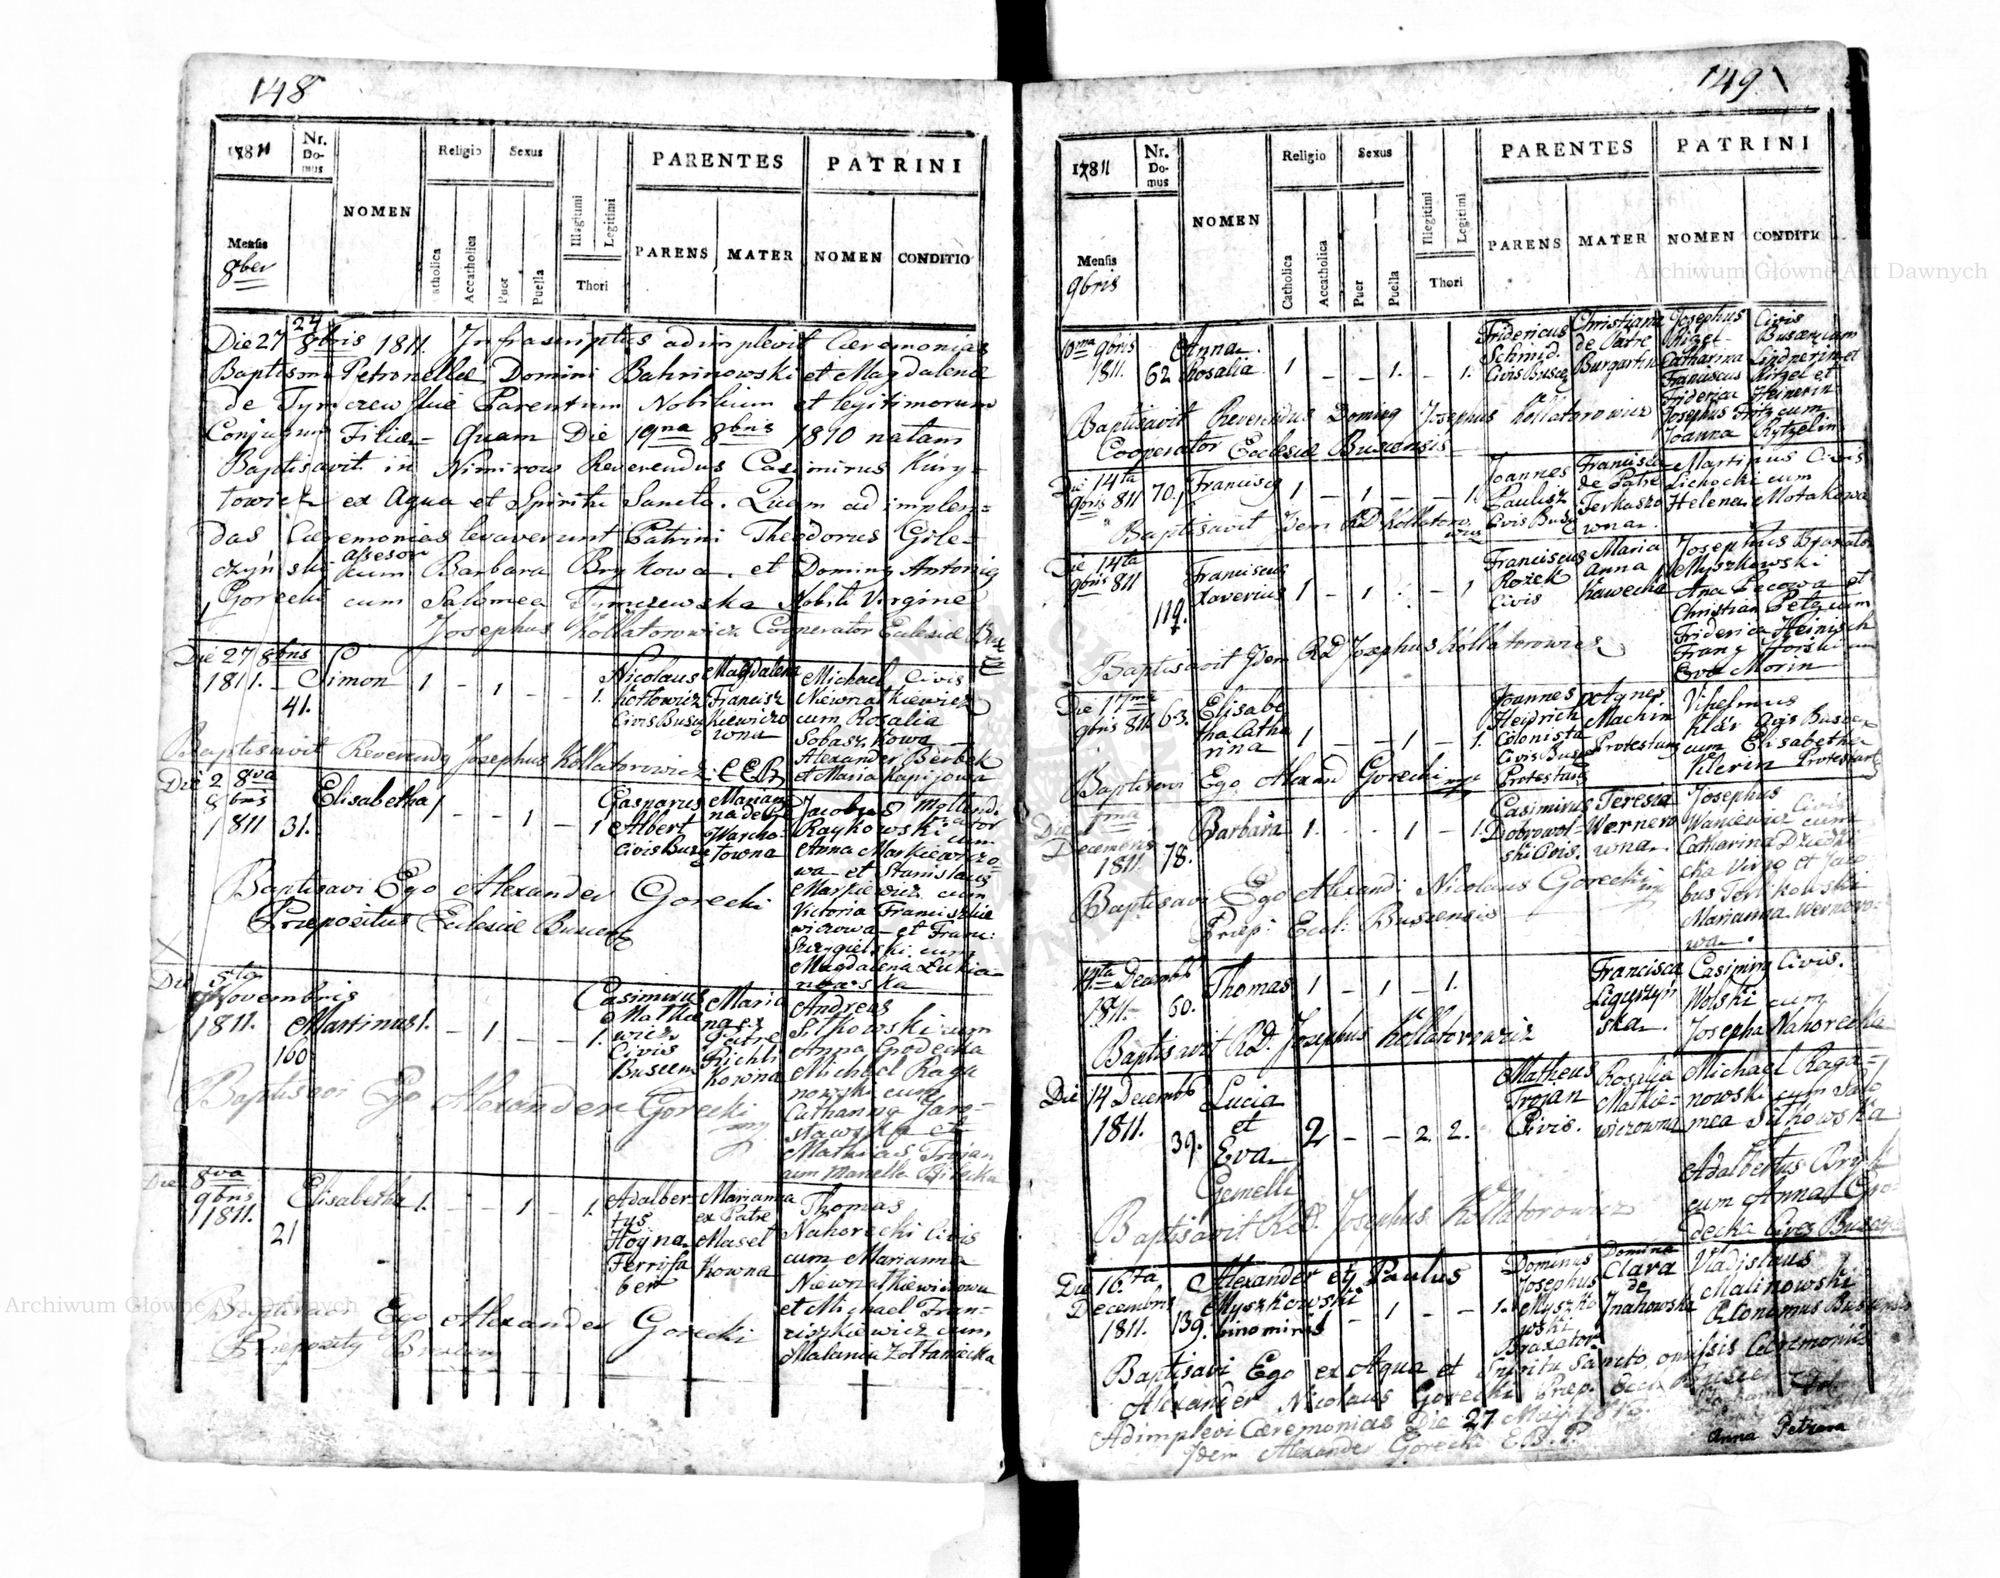 148
1811
Nr. Domus
NOMEN
Religio
Sexus
PARENTES
PATRINI
Mensis
8ber
Catholica
Accatholica
Puer
Puella
Illegitimi
Legitimi
Thori
PARENS
MATER
NOMEN
CONDITIO
24
Die 27 8bris 1811. Infrascriptus adimplevit Cæremonias
Baptismi Petronellæ Domini Bahrinowski et Magdalenæ
de Parentum Nobilium et legitimorum
Conjugum Filiæ - Quam Die 19na 8bris 1810 natam
Baptisavit in Nimirow Reverendus Casimirus Kury=
towicz ex Aqua et Spiritu Sancto. Quam ad implen=
das Cæremonias levaverunt Patrini Theodorus Gole=
czyń ski cum Barbara Brykowa. et Doming Antonig
Gorecki cum Salomea Tymczewska Nobili Virgine
Josephus Kollatorowicz Cooperator Eclesiæ Bus
Die 27 8bris
1811. Simon 1 - 1 - - 1.
41.
Nicolaus
Kotlowicz
Civis Busc
Magdalena
Francisz
kiewiczo
wna
Michael Civis
Niewniatkiewicz
cum Rosalia
Sobasz kowa
Alexander Berbek
et Maria Kapijowa
Baptisavit Reverendg Josephus Kollatorowicz
Die 2 8va
8bris
1811 31. Elisabetha 1 - - 1 - 1
Gasparus
Albert
Civis Busc
Marian
na de Pe
Warcho=
towna
Jacobus
Raykowski cum
Anna Markiewiczo=
wa et Stanislaus
Markiewicz cum
Victoria Franciszkie
wiczowa et Franc:
Szczygielski cum
Magdalena Lukia=
nowska
Baptisavi Ego Alexander Gorecki
Præpositus Eclesiæ Buscens
Die 5ta
Novembris
1811. Martinus 1. - 1 - - 1.
160
Casimirus
Matka
wicz
Civis
Buscens
Maria
na ex
Patre
Richli
kowna
Andreas
Sitkowski cum
Anna Grodecka
Michael Raga
nowski cum
Catharina Jaro=
stawska et
Mathias Trojan
cum Marella
Baptisavi Ego Alexander Gorecki
mp
Die 8va
9bris
1811. Elisabetha 1. - - 1 - 1.
21
Adalber
tus
Hoyna
Ferrifa
ber
Marianna
ex Patre
Masel
kowna
Thomas
Nahorecki Civis
cum Marianna
Niewniatkiewiczowa
et Michael Fran=
ciszkiewicz cum
Malania Zoltaniecka
Baptisavi Ego Alexander Gorecki
Præpositg
149
1811
Nr. Domus
NOMEN
Religio
Sexus
PARENTES
PATRINI
Mensis
9bris
Catholica
Accatholica
Puer
Puella
Illegitimi
Legitimi
Thori
PARENS
MATER
NOMEN
CONDITIO
10ma 9bris
1811. 62 Anna
Rosalia 1 - - 1. - 1.
Fridericus
Schmid.
Civis Buscg
Christiana
de Patre
Burgartin
Josephus Civis
Ritzel Buscencium
Catharina Lindnerin et
Franciscus Ritzel et
Friderica Heinerin
Josephus Hotz cum
Joanna Rytzelin
Baptisavit Reverendus Doming Josephus Kollatorowicz
Cooperator Ecclesiæ Buscensis
Die 14ta
9bris 811 70. Franciscg 1 - 1 - - 1.
Joannes
Paulisz
Civis Busc
Francisca
de Patre
Terkaszo
wna
Martinus Civis
Lichocki cum
Helena Motakowa
Baptisavit Idem RD Kollatoro
wicz
Die 14ta
9bris 811
119. Franciscus
Xaverius 1 - 1 - - 1
Franciscus
Rożek
Civis
Maria
Anna
Kawecka
Josephus Braxator
Myszkowski
Ana Pecowa et
Christian Petz cum
Friderica Heinisch
Franz Horski cum
Eva Morin
Baptisavit Idem RD Josephus Kollatorowicz
Die 17ma
9bris 811 63. Elisabe
tha Catha
rina 1 - - 1 - 1.
Joannes
Heidrich
Colonista
Civis Busc
Protestans
Agnes
Machin
Protestans
Vilhelmus
Klär
cum Elisabetha
Klerin Protestant
Baptisavi Ego Alexand Gorecki mp
Die 1ma
Decembris
1811. 78. Barbara 1. - - 1 - 1.
Casimirus
Dobrowol=
ski Civis.
Teresia
Wernero
wna.
Josephus
Wancewicz cum
Catharina Dziedzi
cka Virgo et Jaco=
bus Terlikowski
Marianna Wernero=
wa.
Baptisavi Ego Alexand: Nicolaus Gorecki mp
Præp: Eccl: Buscensis
14ta Decembr
1811. 60. Thomas 1 - 1 - 1.
Francisca
Ligyszyn
ska.
Casimirg Civis.
Wolski cum
Josepha Nahorecka
Baptisavit RD. Josephus Kollatorowicz
Die 14 Decembr
1811. 39. Lucia
et
Eva
Gemelli 2 - - 2 2.
Matheus
Trojan
Civis.
Rosalia
Matkie=
wiczowna
Michael Raga=
nowski cum Salo
mea Sitkowska
Adalbertus Bryk
cum Anna Gro=
decka Cives Buscens
Baptisavit RD. Josephus Kollatorowicz
Die 16.ta
Decembris
1811. 139. Alexander et Paulus
Myszkowski
binomines - 1 - - 1.
Dominus
Josephus
Myszko
wski
Braxator
Domina
Clara
de
Jnahowska
Vladislaus
Malinowski
Œconomus Buscensis
Baptisavi Ego ex Aqua et Spiritu Sancto, omissis Cæremoniis
Alexander Nicolaus Gorecki Præp. Eccl. Busc
Adimplevi Cæremonias Die 27 Maij 1813.
Idem Alexander Gorecki E. B. P.
Anna Petzowa
Archiwum Główne Akt Dawnych
Archiwum Główne Akt Dawnych